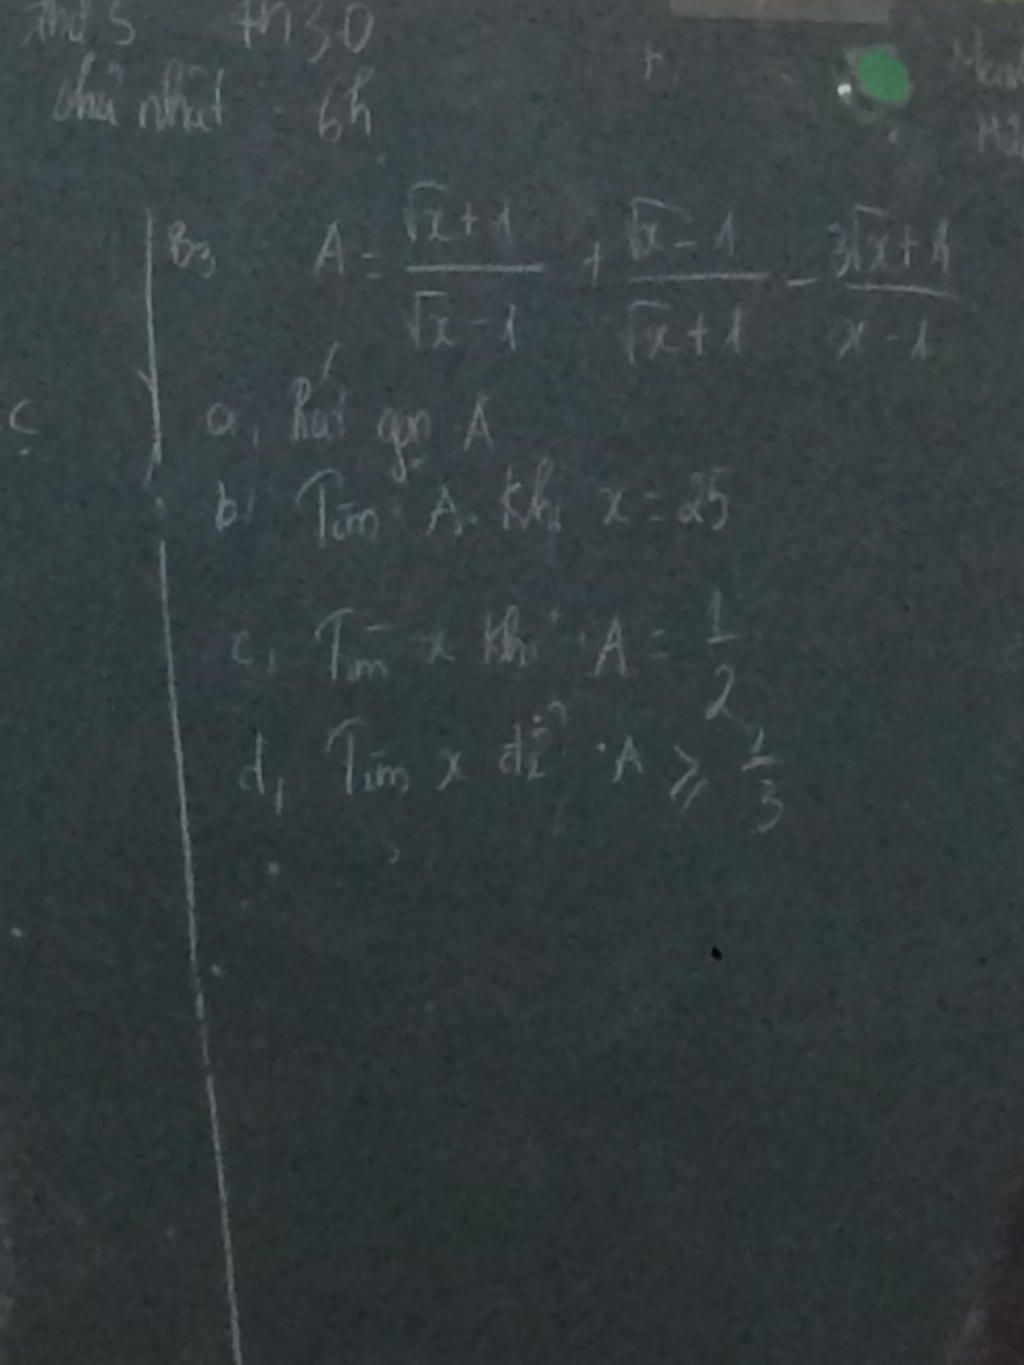 thứ 5 7h30
chủ nhật 6h
B3 A = \frac{\sqrt{x}+1}{\sqrt{x}-1} + \frac{\sqrt{x}-1}{\sqrt{x}+1} - \frac{3\sqrt{x}+1}{x-1}
a, Rút gọn A
b, Tìm A khi x = 25
c, Tìm x khi A = \frac{1}{2}
d, Tìm x để A ⩾ \frac{1}{3}